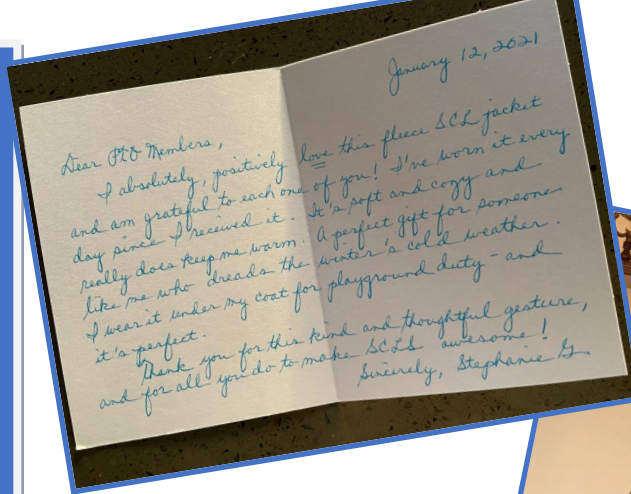 January 12, 2021
Dear PTO Members,
I absolutely, positively love this fleece SCL jacket
and am grateful to each one of you! I've worn it every
day since I received it. It's soft and cozy and
really does keep me warm. A perfect gift for someone
like me who dreads the winter's cold weather.
I wear it under my coat for playground duty - and
it's perfect.
Thank you for this kind and thoughtful gesture,
and for all you do to make SCLS awesome!
Sincerely, Stephanie G.